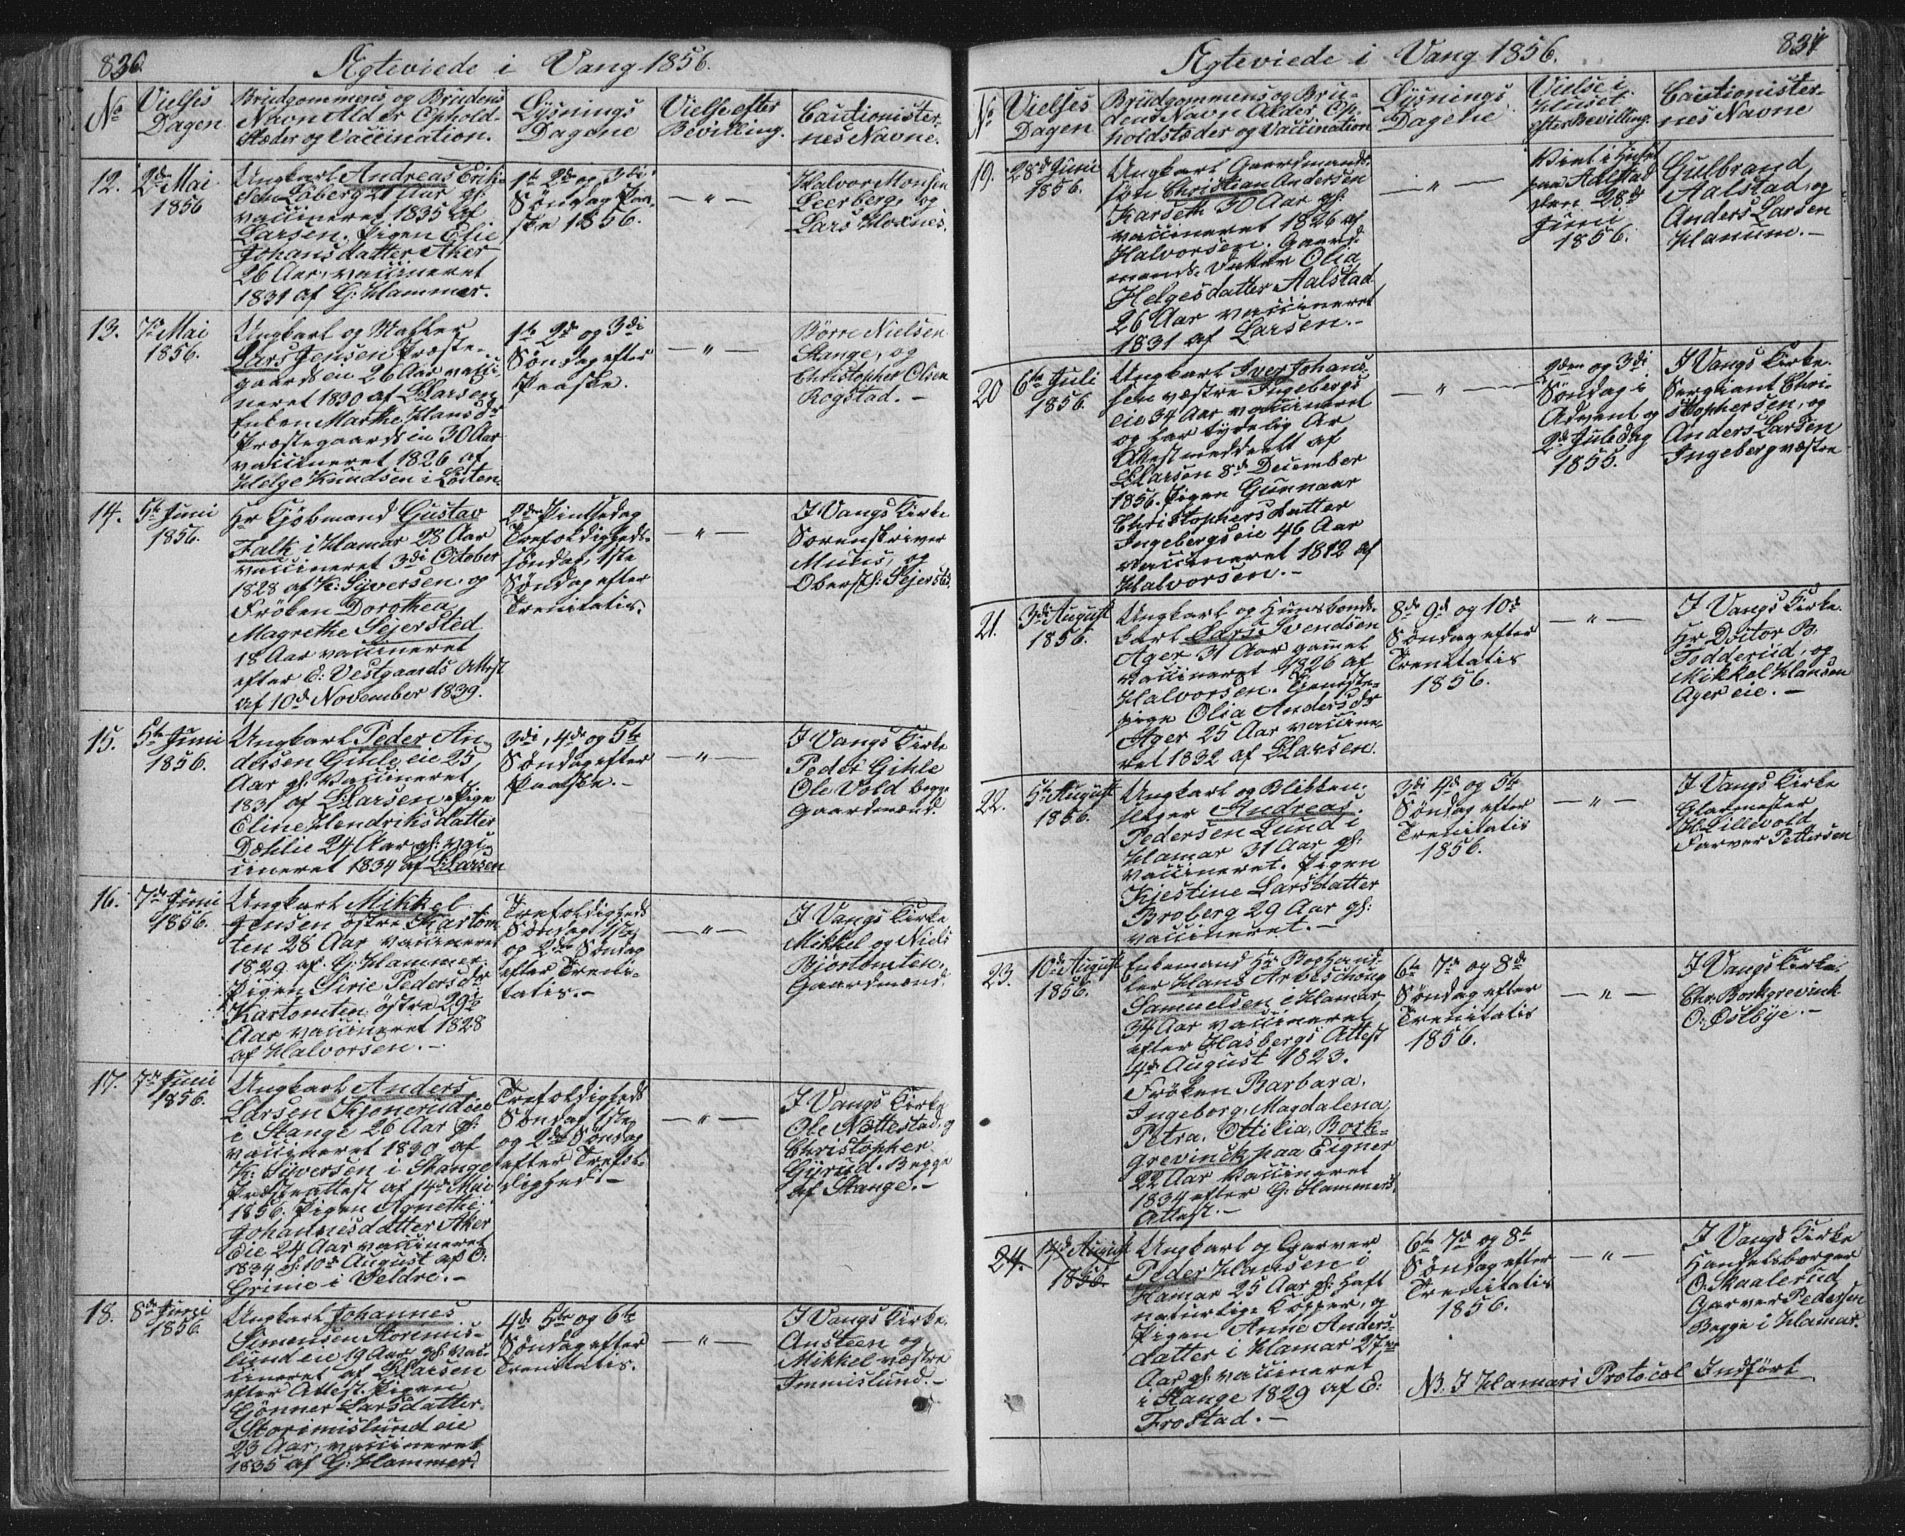 836.
Ægteviede i Vang 1856.
No
Vielses
Dagen
Brudgommens og Brudens
Navn Alder Ophold-
stæder og Vaccination.
Lysnings
Dagene
Vielse efter
Bevilling.
Cautionister-
nes Navne.
12.
2den Mai
1856
Ungkarl Andreas Erik-
sen Loberg 21 Aar gl.
vaccineret 1835 af
Larsen. Pigen Elie
Johansdatter Aker
26 Aar, vaccineret
1831 af G: Hammer.
1ste 2de og 3die
Søndag i Fa-
ste 1856.
— " —
Halvor Monsen
Leerberg, og
Lars Hoxnes.
13.
7de Mai
1856.
Ungkarl og
Lars Jensen Præste-
gaards eie 26 Aar vacci-
neret 1830 af L Larsen
Enken Marthe Hansdr
Præstegaards eie 30 Aar
vaccineret 1826 af
Helge Knudsen i Löiten
1ste 2de og 3die
Søndag efter
Paaske.
— " —
Börre Nielsen
Stange, og
Christopher Olsen
Rogstad. —
14.
5te Juni
1856.
Hr Kjöbmand Gustav
Falk i Hamar 28 Aar
vaccineret 3die October
1828 af K: Syversen og
Fröken Dorothea
Magrethe Sejersted
18 Aar vaccineret
efter E: Vestgaards Attest
af 10de November 1839.
2den Pintsedag
Trefoldigheds-
söndag, 1ste
Søndag efter
Trenitatis.
— " —
I Vangs Kirke
Sorenskriver
Munis, og
Oberstl: Sejersted.
15.
5te Juni
1856.
Ungkarl Peder An-
dersen Gihle eie 25
Aar gl. Vaccineret
1831 af L Larsen. Pige
Eline Hendriksdatter
Dæhlie 24 Aar gl. vac-
cineret 1834 af L Larsen
3die, 4de og 5te
Søndag efter
Paaske. —
— " —
I Vangs Kirke
Peder Gihle
Ole Vold begge
Gaardmænd.
16.
7de Juni
1856.
Ungkarl Mikkel
Jensen östre Kartom-
ten 28 Aar vaccineret
1829 af G: Hammer.
Pigen Sirie Pedersdr
Kartomten östre 29½
Aar vaccineret 1828
af Halvorsen. —
Trefoldigheds
Søndag, 1ste
og 2den Søndag
efter Treni-
tatis. —
— " —
I Vangs Kirke
Mikkel og Niels
Bjortomten,
Gaardmænd.
17.
7de Juni
1856.
Ungkarl Anders
Larsen Kjonerud eie
i Stange 26 Aar gl.
vaccineret 1830 af
K: Syversen i Stange
Præsteattest af 14de Mai
1856. Pigen Agnethe
Johannesdatter Aker
Eie 24 Aar vaccineret
1834 d: 10de August af O:
Grinie i Veldre. —
Trefoldigheds
Søndag, 1ste
og 2den Søndag
efter Trefol-
dighed. —
— " —
I Vangs Kirke
Ole Nættestad, og
Christopher
Gyrud. Begge
af Stange. —
18.
8de Juni
1856.
Ungkarl Johannes
Simensen Storimis-
lund eie 19 Aar gl. vac-
cineret af L Larsen
efter Attest. Pigen
Gönner Larsdatter
Storimislund eie
23 Aar, vaccineret
1835 af G: Hammer.
4de 5te og 6te
Søndag efter
Trenitatis.
— " —
I Vangs Kirke.
Austeen og
Mikkel væstre
Immislund. —
837
Ægteviede i Vang 1856.
No
Vielses
Dagen
Brudgommens og Bru-
dens Navn Alder Op-
holdstæder og Vaccination
Lysnings
Dagene
Vielse i
Huset
efter Bevilling.
Cautionister-
nes Navne
19.
28de Juni
1856.
Ungkarl Gaardmands-
søn Christian Andersen
Karseth 30 Aar gl.
vaccineret 1826 af
Halvorsen. Gaard-
mands datter Olia
Helgesdatter Aalstad
26 Aar vaccineret
1831 af Larsen. —
— " —
Viet i Huset
paa Aalstad
den 28de
Juni
1856.
Gulbrand
Aalstad, og
Anders Larsen
Hanum. —
20
6te Juli
1856.
Ungkarl Iver Johans-
sen væstre Ingebergs
eie 34 Aar vaccineret
og har tydelig Ar
Attest meddeelt af
L Larsen 8de December
1856. Pigen Gunnaar
Christophersdatter
Ingebergs eie 46 Aar
vaccineret 1812 af
Halvorsen. —
— " —
2den og 3die
Søndag i
Advent og
2de Juledag
1855.
I Vangs Kirke.
Sergeant Chri-
stophersen, og
Anders Larsen
Ingeberg væstre
21.
3die August
1856.
Ungkarl og Huusbonds-
karl Lars Svendsen
Ager 31 Aar gammel
Vaccineret 1826 af
Halvorsen. Tjeneste-
pige Olia Andersdr
Ager 25 Aar vaccine-
ret 1832 af L Larsen.
8de 9de og 10de
Søndag efter
Trenitatis
1856.
— " —
I Vangs Kirke.
Hr Doctor B.
Todderud, og
Mikkel Hansen
Ager eie. —
22.
5te August
1856.
Ungkarl og Blikken-
slager Andreas
Pedersen Lund i
Hamar 31 Aar gl.
vaccineret. Pigen
Kjestine Larsdatter
Broberg 29 Aar gl.
vaccineret. —
3die 4de og 5te
Søndag efter
Trenitatis
1856.
— " —
I Vangs Kirke
Glarmester
H. Lillevold
Farver Pettersen
23.
10de August
1856.
Enkemand Hr Boghand-
ler Hans Arveschoug
Samuelsen i Hamar
34 Aar vaccineret
efter Hasbergs Attest
4de August 1823.
Frøken Barbara.
Ingeborg, Magdalena,
Petra, Ottilia, Bork-
grevinck paa Eigner
22 Aar Vaccineret
1834 efter G: Hammers
Attest. —
6te 7de og 8de
Søndag efter
Trenitatis
1856.
— " —
I Vangs Kirke.
Chr. Borkgrevink
O: Östbye. —
24.
14de August
1856.
Ungkarl og Garver
Peder Hansen i
Hamar 25 Aar gl: haft
naturlige Kopper, og
Pigen Anne Anders-
datter i Hamar 27
Aar gl. vaccineret
i Stange 1829 af E:
Frostad. —
6te 7de og 8de
Søndag efter
Trenitatis
1856.
— " —
I Vangs Kirke
Handelsborger
O. Skaalerud
Garver Pedersen
Begge i Hamar.
NB. I Hamars Protocol Indført